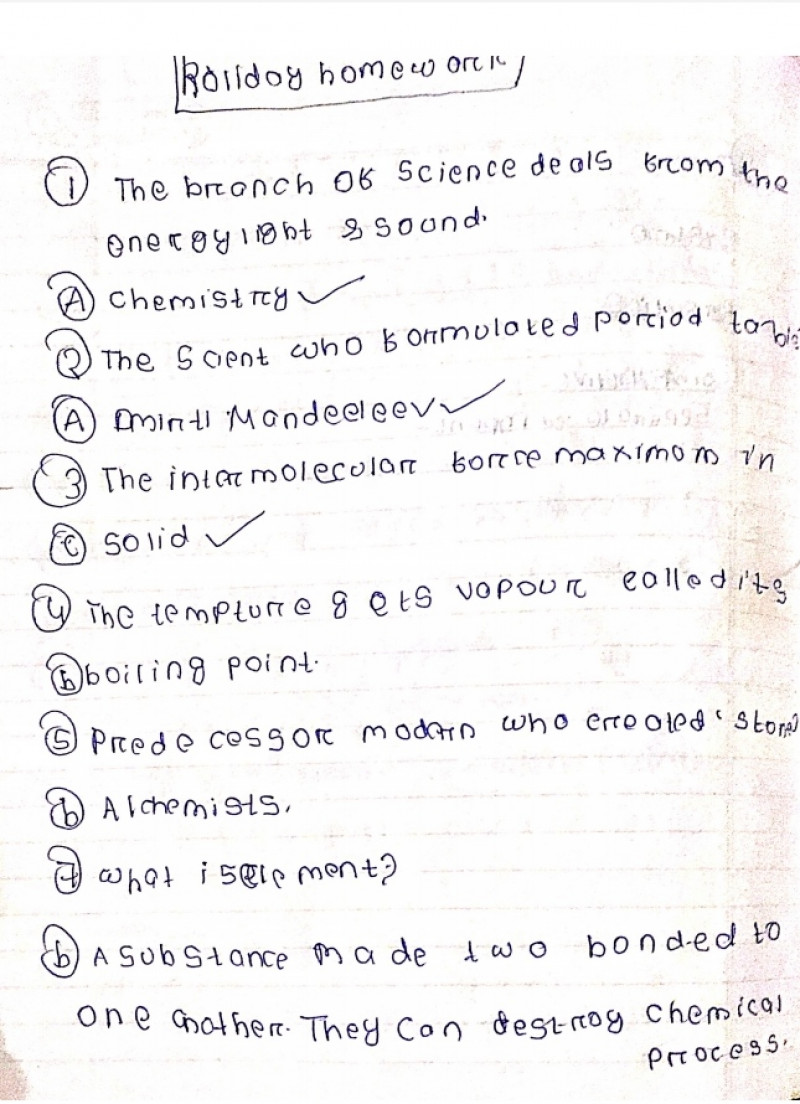 Holiday homework
① The branch of Science deals from the
energy light & sound.
Ⓐ Chemistry ✓
② The Scient who formulated poriod table
Ⓐ Dmirti Mandeeleev ✓
③ The intarmolecular force maximom in
ⓒ Solid ✓
④ The tempture gets vapour called its
ⓑ boiling point.
⑤ Predecessor modarn who created 'stone'
ⓑ Alchemists.
⑦ what is element?
ⓑ A substance made two bonded to
one another. They can destroy chemical
process.